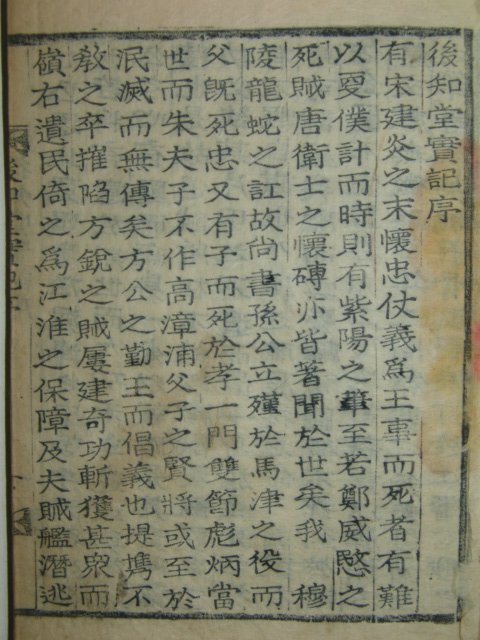 後知堂實記序
有宋建炎之末懷忠仗義爲王事而死者有難
以更僕計而時則有紫陽之筆至若鄭威愍之
死賊唐衛士之懷磚亦皆著聞於世矣我 穆
陵龍蛇之訌故尙書孫公立殣於馬津之役而
父旣死忠又有子而死於孝一門雙節彪炳當
世而朱夫子不作高漳浦父子之賢將或至於
泯滅而無傳矣方公之勤王而倡義也提携不
敎之卒摧陷方銳之賊屢建奇功斬獲甚衆而
嶺右遺民倚之爲江淮之保障及夫賊艦潛逃